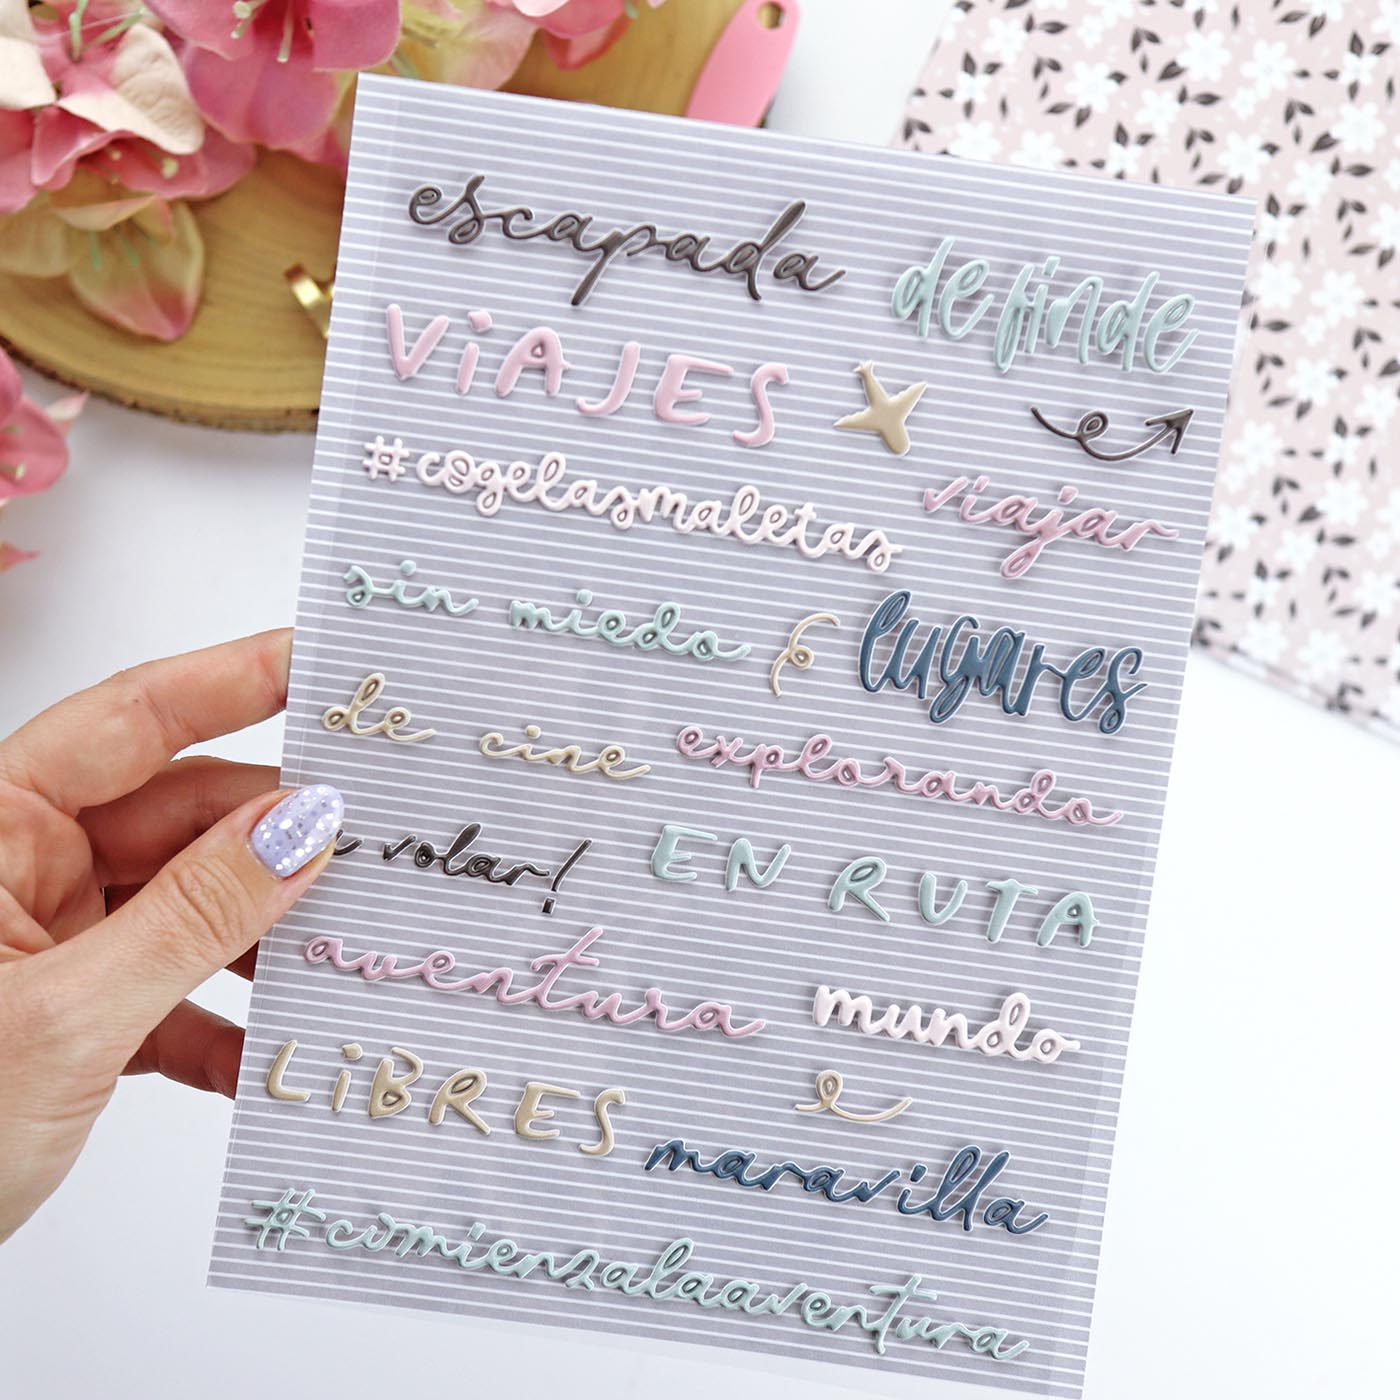 escapada
de finde
VIAJES
#cogelasmaletas
viajar
sin miedo
lugares
de cine
explorando
volar!
EN RUTA
aventura
mundo
LiBRES
maravilla
#comienzalaaventura